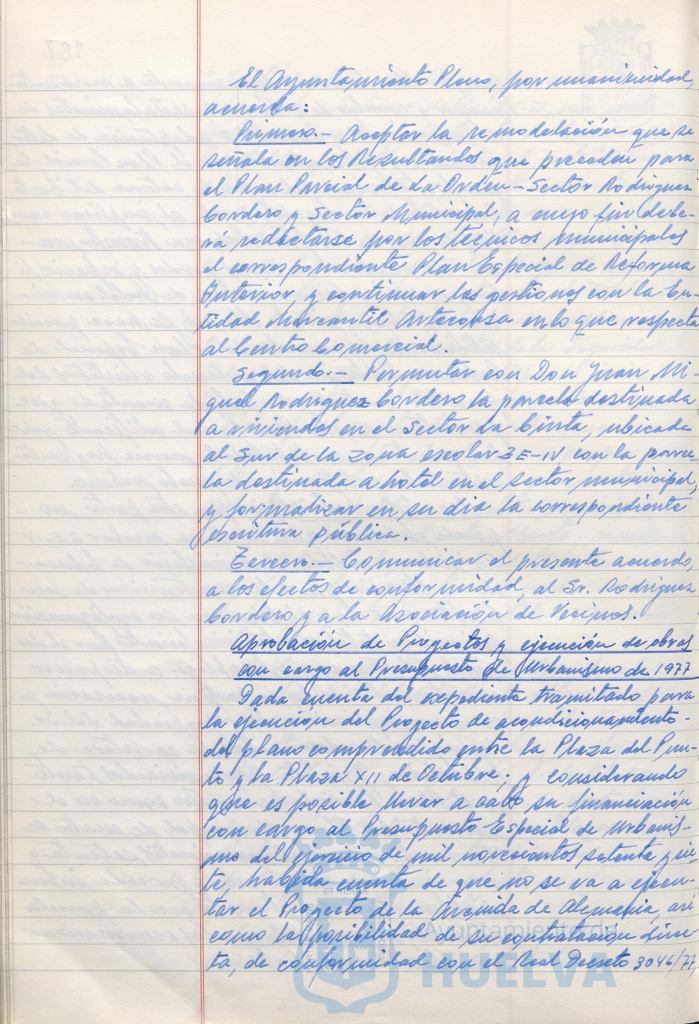 El Ayuntamiento Pleno, por unanimidad,
acuerda:
Primero.- Aceptar la remodelación que se
señala en los Resultandos que preceden para
el Plan Parcial de La Orden-Sector Rodríguez
Cordero y Sector Municipal, a cuyo fin debe-
rá redactarse por los técnicos municipales
el correspondiente Plan Especial de Reforma
Interior, y continuar las gestiones con la En-
tidad Mercantil Artecosa en lo que respecta
al Centro Comercial.
Segundo.- Permutar con Don Juan Mi-
guel Rodríguez Cordero la parcela destinada
a viviendas en el Sector La Cinta, ubicada
al Sur de la zona escolar ZE-IV con la parce-
la destinada a hotel en el sector municipal,
y formalizar en su día la correspondiente
escritura pública.
Tercero.- Comunicar el presente acuerdo,
a los efectos de conformidad, al Sr. Rodríguez
Cordero y a la Asociación de Vecinos.
Aprobación de Proyectos y ejecución de obras
con cargo al Presupuesto de Urbanismo de 1977
Dada cuenta del expediente tramitado para
la ejecución del Proyecto de acondicionamiento
del plano comprendido entre la Plaza del Pun-
to y la Plaza XII de Octubre; y considerando
que es posible llevar a cabo su financiación
con cargo al Presupuesto Especial de Urbanis-
mo del ejercicio de mil novecientos setenta y sie-
te, habida cuenta de que no se va a ejecu-
tar el Proyecto de la Avenida de Alemania, así
como la posibilidad de su contratación direc-
ta, de conformidad con el Real Decreto 3046/77,
Ayuntamiento de
HUELVA